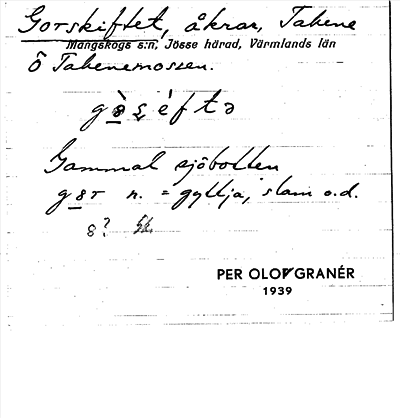 Gorskiftet, åkrar, Tahene
Mangskogs s:n, Jösse härad, Värmlands län
Ö Tahenemossen.
Gammal sjöbotten
n. = gyttja, slam o.d.
8?
PER OLOF GRANÉR
1939